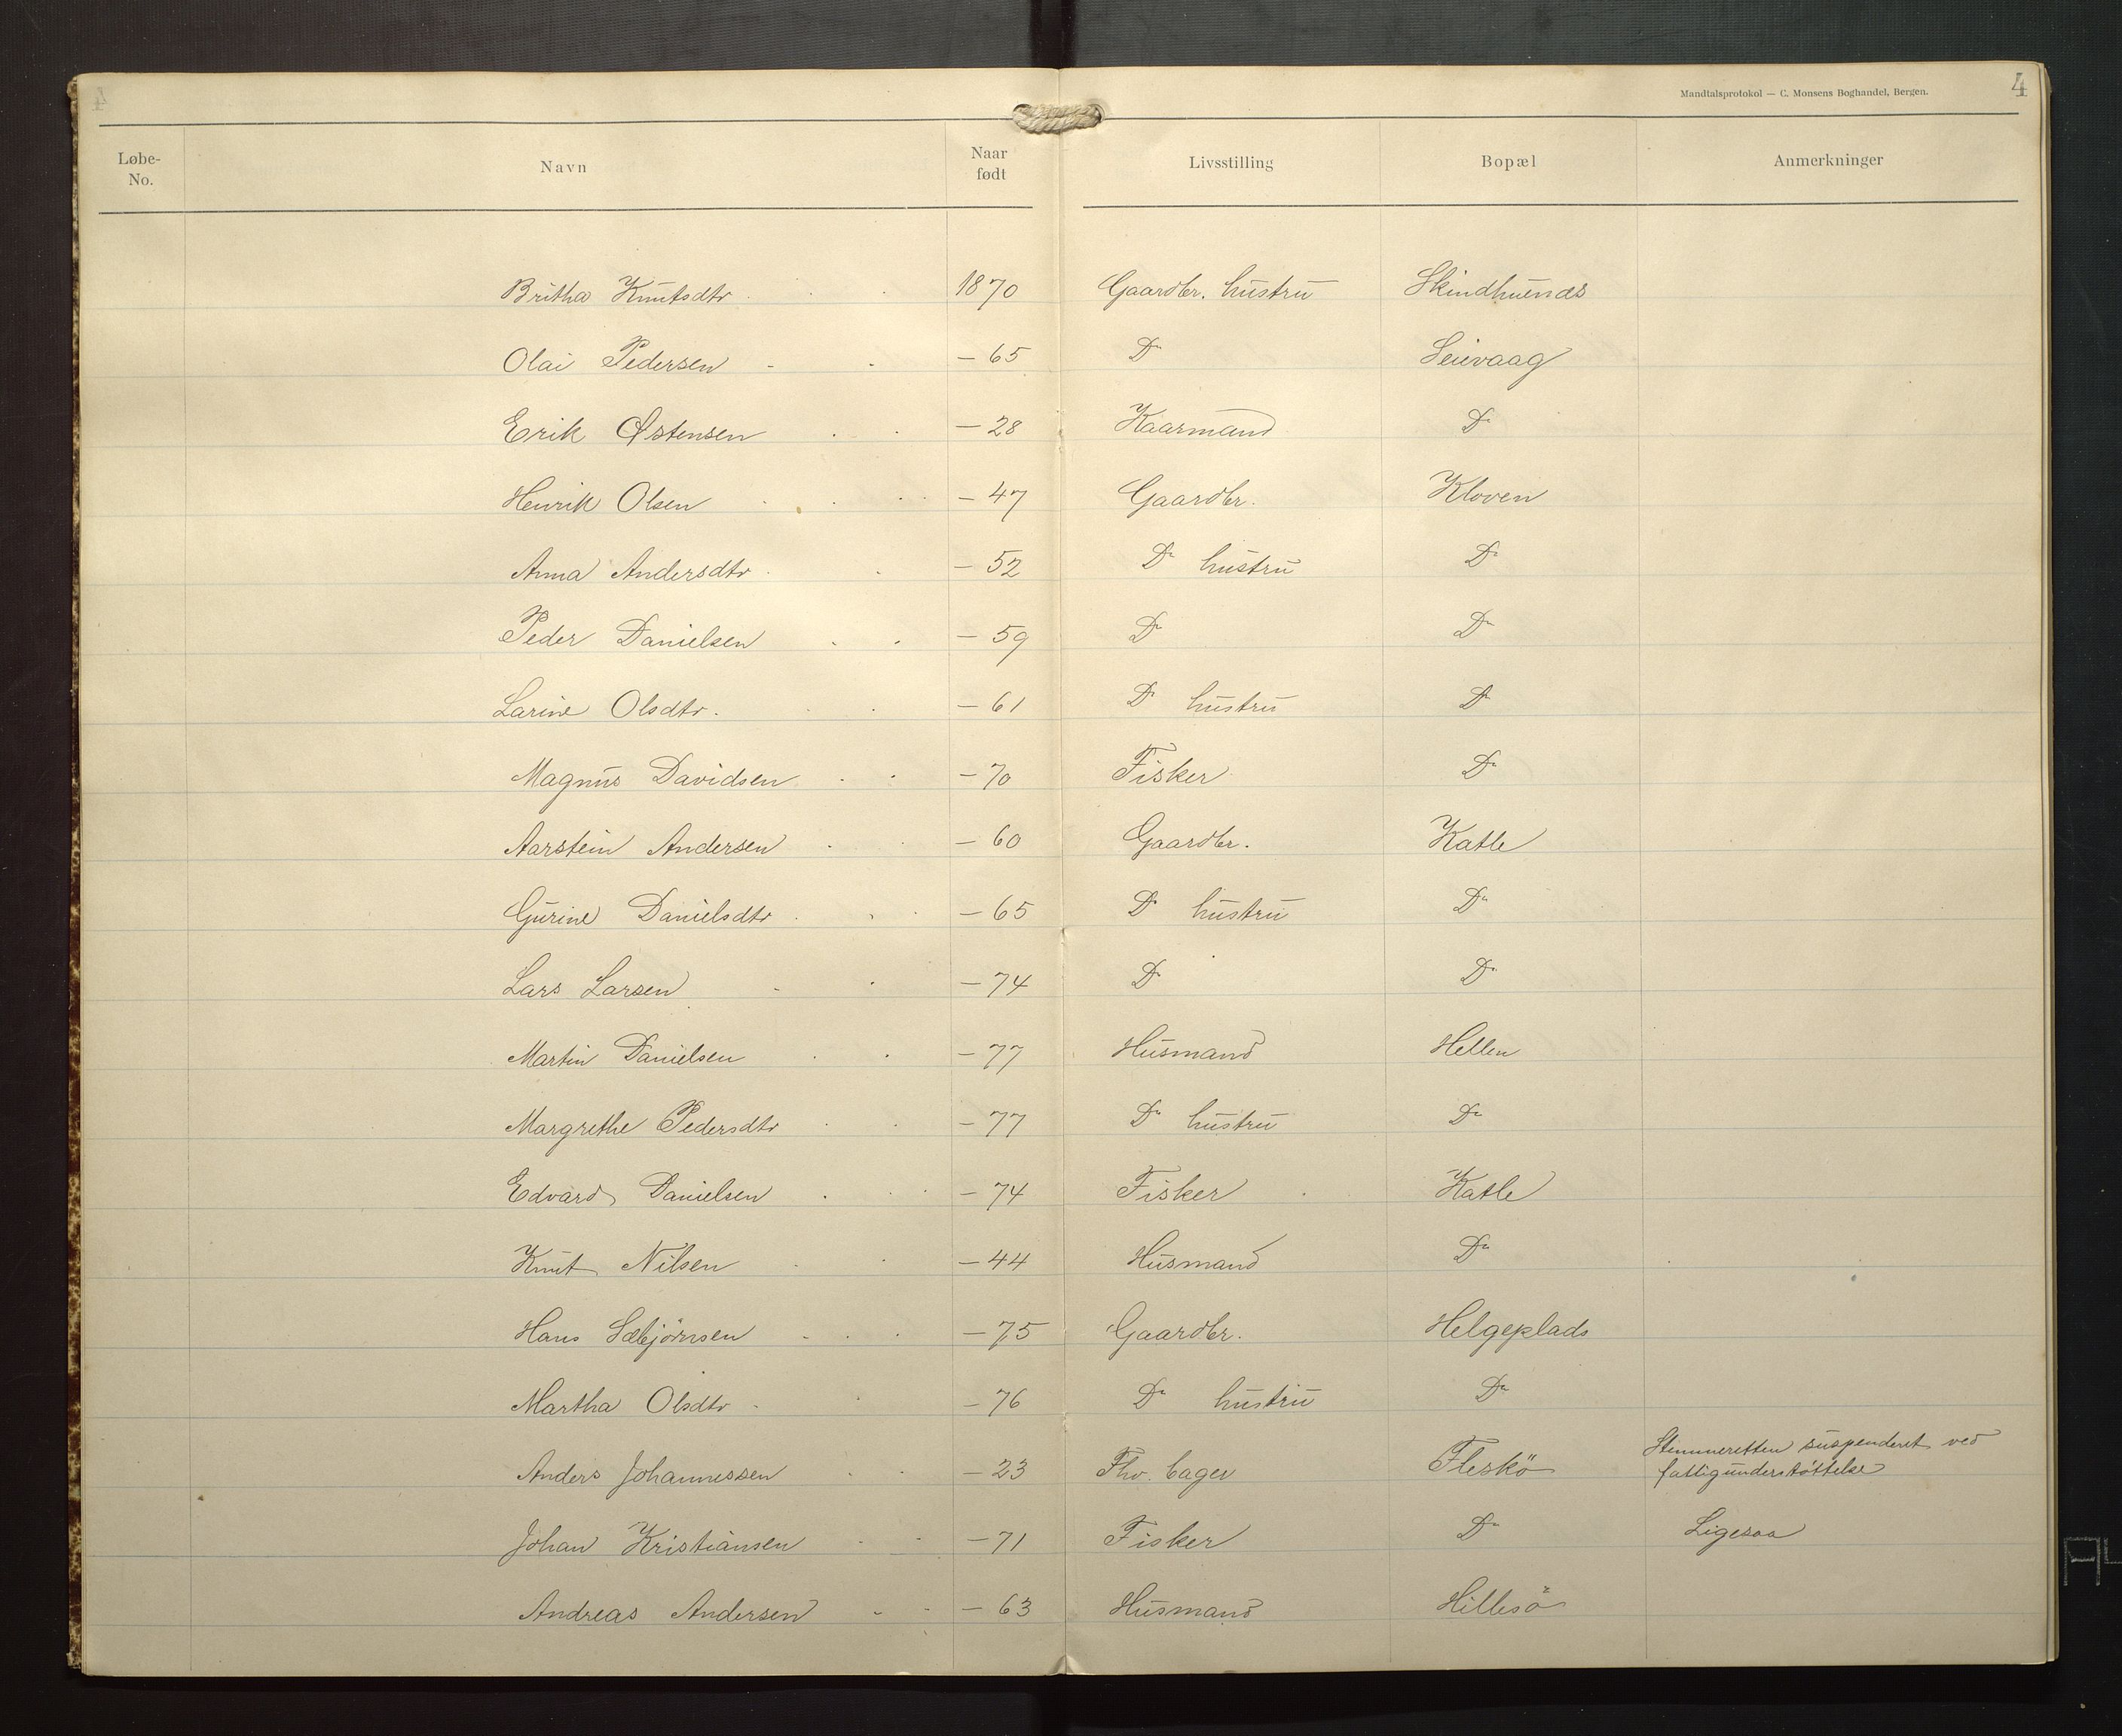 Mandtalsprotokol — C. Monsens Boghandel, Bergen. 4
Løbe-No. Navn Naar født Livsstilling Bopæl Anmerkninger
Britha Knutsdtr. 1870 Gaardbr. hustru Skindhuends
Olai Pedersen — 65 Do Seievaag
Erik Østensen — 28 Kaarmand Do
Henrik Olsen — 47 Gaardbr. Kloven
Anna Andersdtr. — 52 Do hustru Do
Peder Danielsen — 59 Do Do
Larine Olsdtr. — 61 Do hustru Do
Magnus Davidsen — 70 Fisker Do
Aarstein Andersen — 60 Gaardbr. Katle
Gurine Danielsdtr. — 65 Do hustru Do
Lars Larsen — 74 Do Do
Martin Danielsen — 77 Husmand Hellen
Margrethe Pedersdtr — 77 Do hustru Do
Edvard Danielsen — 74 Fisker Katle
Knut Nilsen — 44 Husmand Do
Hans Sæbjörnsen — 75 Gaardbr. Helgeplads
Martha Olsdtr — 76 Do hustru Do
Anders Johannessen — 23 Fhv. bager Fleskö Stemmeretten suspenderet ved
fattigunderstöttelse
Johan Kristiansen — 71 Fisker Do Ligesaa
Andreas Andersen — 63 Husmand Hillesö